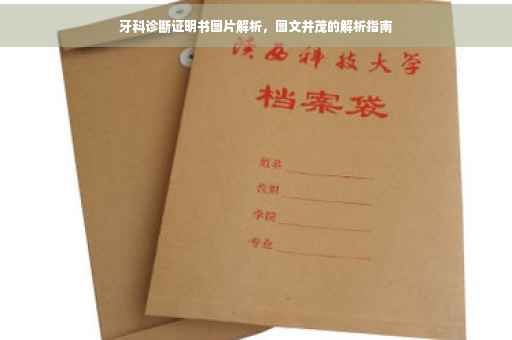 牙科诊断证明书图片解析，图文并茂的解析指南
陕西科技大学
档案袋
姓名
学院
专业